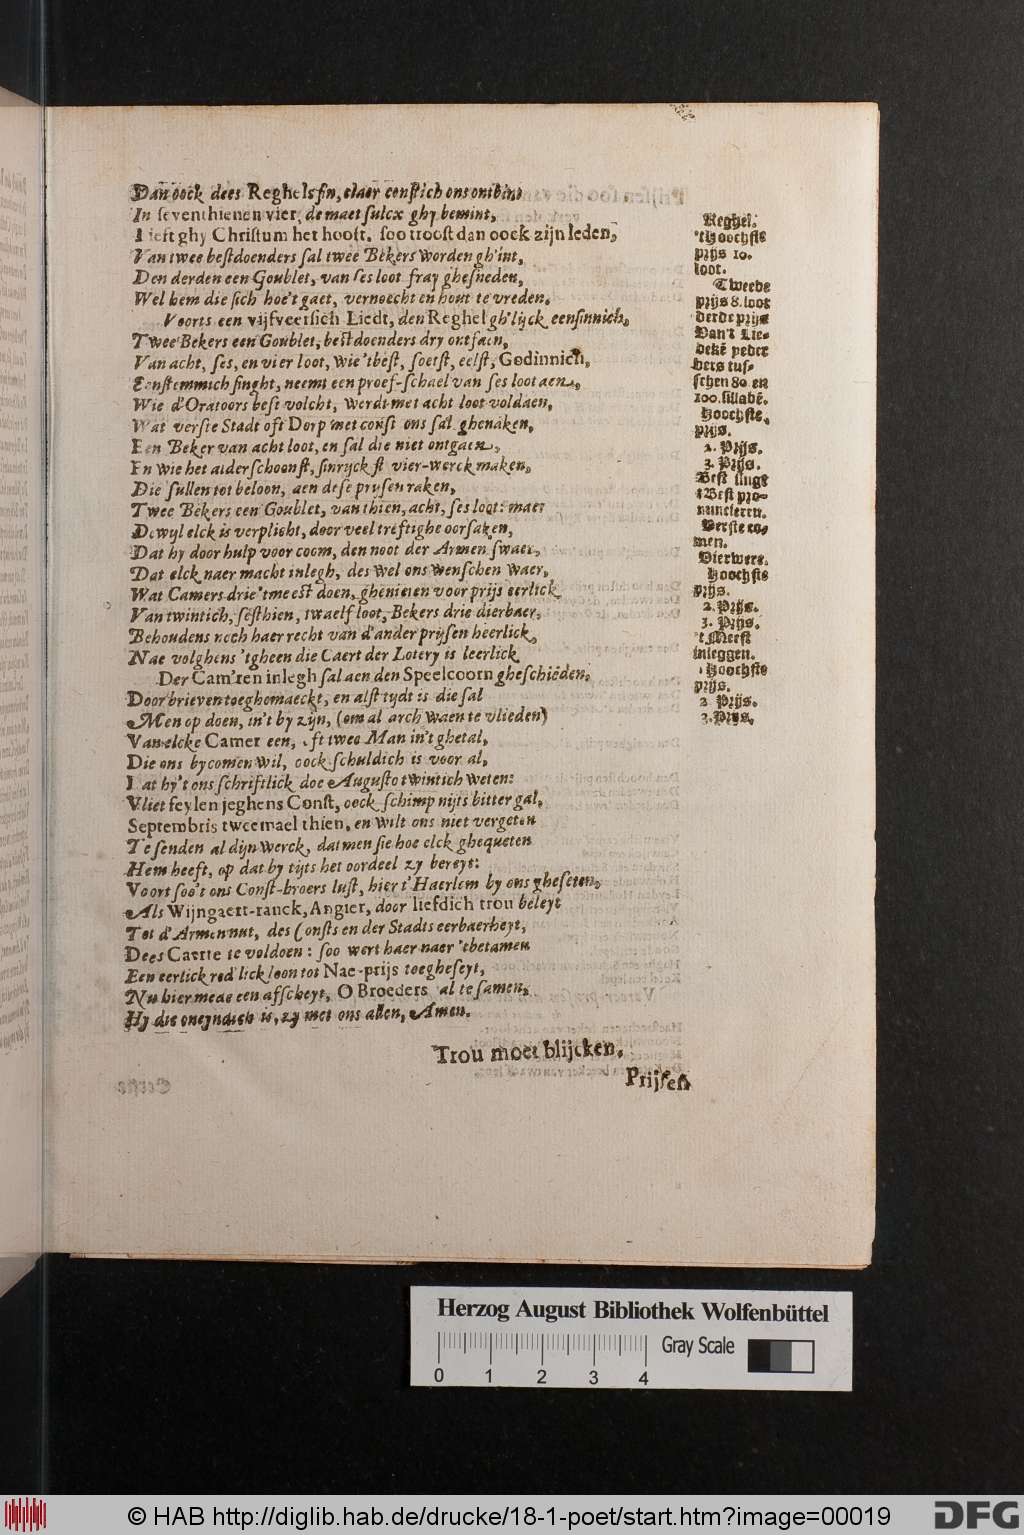 Dan oock dees Reghels sin, claer constich ons ontbint
In seventhienen vier, de maet sulcx ghy bemint,
Lieft ghy Christum het hooft, soo troost dan oock zijn leden,
Van twee bestdoenders sal twee Bekers worden gh'int,
Den derden een Goublet, van ses loot fray ghesneden,
Wel hem die sich hoe't gaet, vernoecht en hout te vreden.
Voorts een vijfveersich Liedt, den Reghel gh'lijck eensinnich,
Twee Bekers een Goublet, best doenders dry ontfaen,
Van acht, ses, en vier loot, wie 'tbest, soetst, eelst, Godinnich,
Eenstemmich singht, neemt een proef-schael van ses loot aen,
Wie d'Oratoors best volcht, werdt met acht loot voldaen,
Wat verste Stadt oft Dorp met const ons sal ghenaken,
Een Beker van acht loot, en sal die niet ontgaen,
En wie het alderschoonst, sinrijckst vier-werck maken,
Die sullen tot beloon, aen dese prysen raken,
Twee Bekers een Goublet, van thien, acht, ses loot: maer
Dewyl elck is verplicht, door veel treftighe oorsaken,
Dat hy door hulp voor coom, den noot der Armen swaer,
Dat elck naer macht inlegh, des wel ons wenschen waer,
Wat Camers drie 'tmeest doen, ghenieten voor prijs eerlick
Van twintich, sesthien, twaelf loot, Bekers drie dierbaer,
Behoudens noch haer recht van d'ander prijsen heerlick,
Nae volghens 'tgheen die Caert der Lotery is leerlick
Der Cam'ren inlegh sal aen den Speelcoorn gheschieden,
Door brieven toeghemaeckt, en alst tijdt is die sal
Men op doen, in't by zijn, (om al arch waen te vlieden)
Van elcke Camer een, oft twee Man in't ghetal,
Die ons bycomen wil, oock schuldich is voor al,
Dat hy't ons schriftlick doe Augusto twintich weten:
Vliet feylen jeghens Const, oock schimp nijts bitter gal,
Septembris tweemael thien, en wilt ons niet vergeten
Te senden al dijn werck, dat men sie hoe elck ghequeten
Hem heeft, op dat by tijts het oordeel zy bereyt:
Voort soo't ons Const-broers lust, hier t'Haerlem by ons gheseten,
Als Wijngaert-ranck, Angier, door liefdich trou beleyt
Tot d'Armen nut, des Consts en der Stadts eerbaerheyt,
Dees Caerte te voldoen: soo wert haer naer 'tbetamen
Een eerlick redlick loon tot Nae-prijs toegheseyt,
Nu hier mede een afscheyt, O Broeders al te samen,
Hy die oneyndich is, zy met ons allen, Amen.
Trou moet blijcken.
Prijsen
Reghel.
'tHoochste
prijs 10.
loot.
Tweede
prijs 8. loot
derde prijs
Van't Lie-
dekē yeder
vers tus-
schen 80 en
100. sillabē.
Hoochste
prijs.
2. Prijs.
3. Prijs.
Best singt
't Best pro-
nuncieren.
Verste co-
men.
Vierwerc.
Hoochste
prijs.
2. Prijs.
3. Prijs.
't Meest
inleggen.
Hoochste
prijs.
2 Prijs.
3. Prijs.
Herzog August Bibliothek Wolfenbüttel
Gray Scale
0 1 2 3 4
© HAB http://diglib.hab.de/drucke/18-1-poet/start.htm?image=00019
DFG